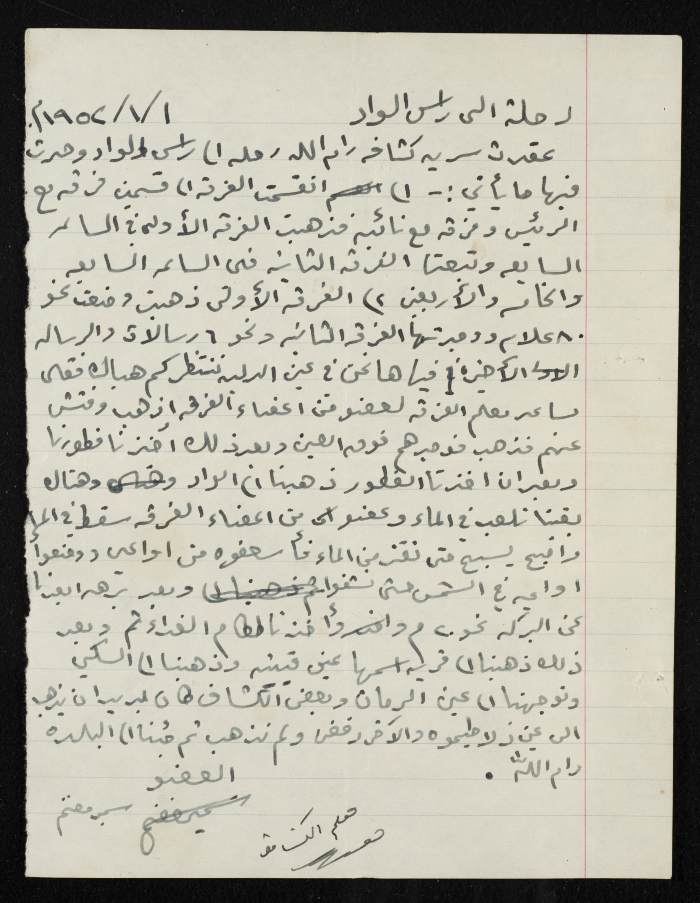 رحلة الى راس الواد ١/١/١٩٥٢م.
عقدت سريه كشافه رام الله رحله ا) راس الواد وجرت
فيها ما يأتي :- ١) انقسمت الفرقه ا) قسمين فرقه مع
الرئيس وفرقه مع نائبه فذهبت الفرقه الأولى في الساعه
السابعه وتبعتها الفرقه الثانيه في الساعه السابعه
والخامسه والأربعين ٢) الفرقه الأولى ذهبت وضعت نحو
٨٠ علام ووجدتها الفرقه الثانيه ونحو ٦ رسالات والرساله
الأخيره فيها ها نحن في عين الدلبه ننتظركم هناك فقال
مساعد معلم الفرقه لعضو من اعضاء الفرقه اذهب وفتش
عنهم فذهب فوجدهم فوق العين وبعد ذلك اخذنا فطورنا
وبعد ان اخذنا الفطور ذهبنا ا) الواد وهناك
بقينا نلعب في الماء وعضو من اعضاء الفرقه سقط في الماء
واصبح يسبح حتى نقذ من الماء فأسعفوه من اواعي ووضعوا
اواعيه في الشمس حتى نشفوا وبعد برهه ابعدنا
عن البركه نحو ٢٠ م وأخذنا طعام الغداء ثم وبعد
ذلك ذهبنا ا) قريه اسمها عين قينيه وذهبنا ا)
وتوجهنا ا) عين الرمان وبعض الكشاف كان يريد ان يذهب
الى عين والآخر رفض ولم نذهب ثم جئنا ا) البلده
رام الله.
العضو
سمير مغنم
معلم الكشافه